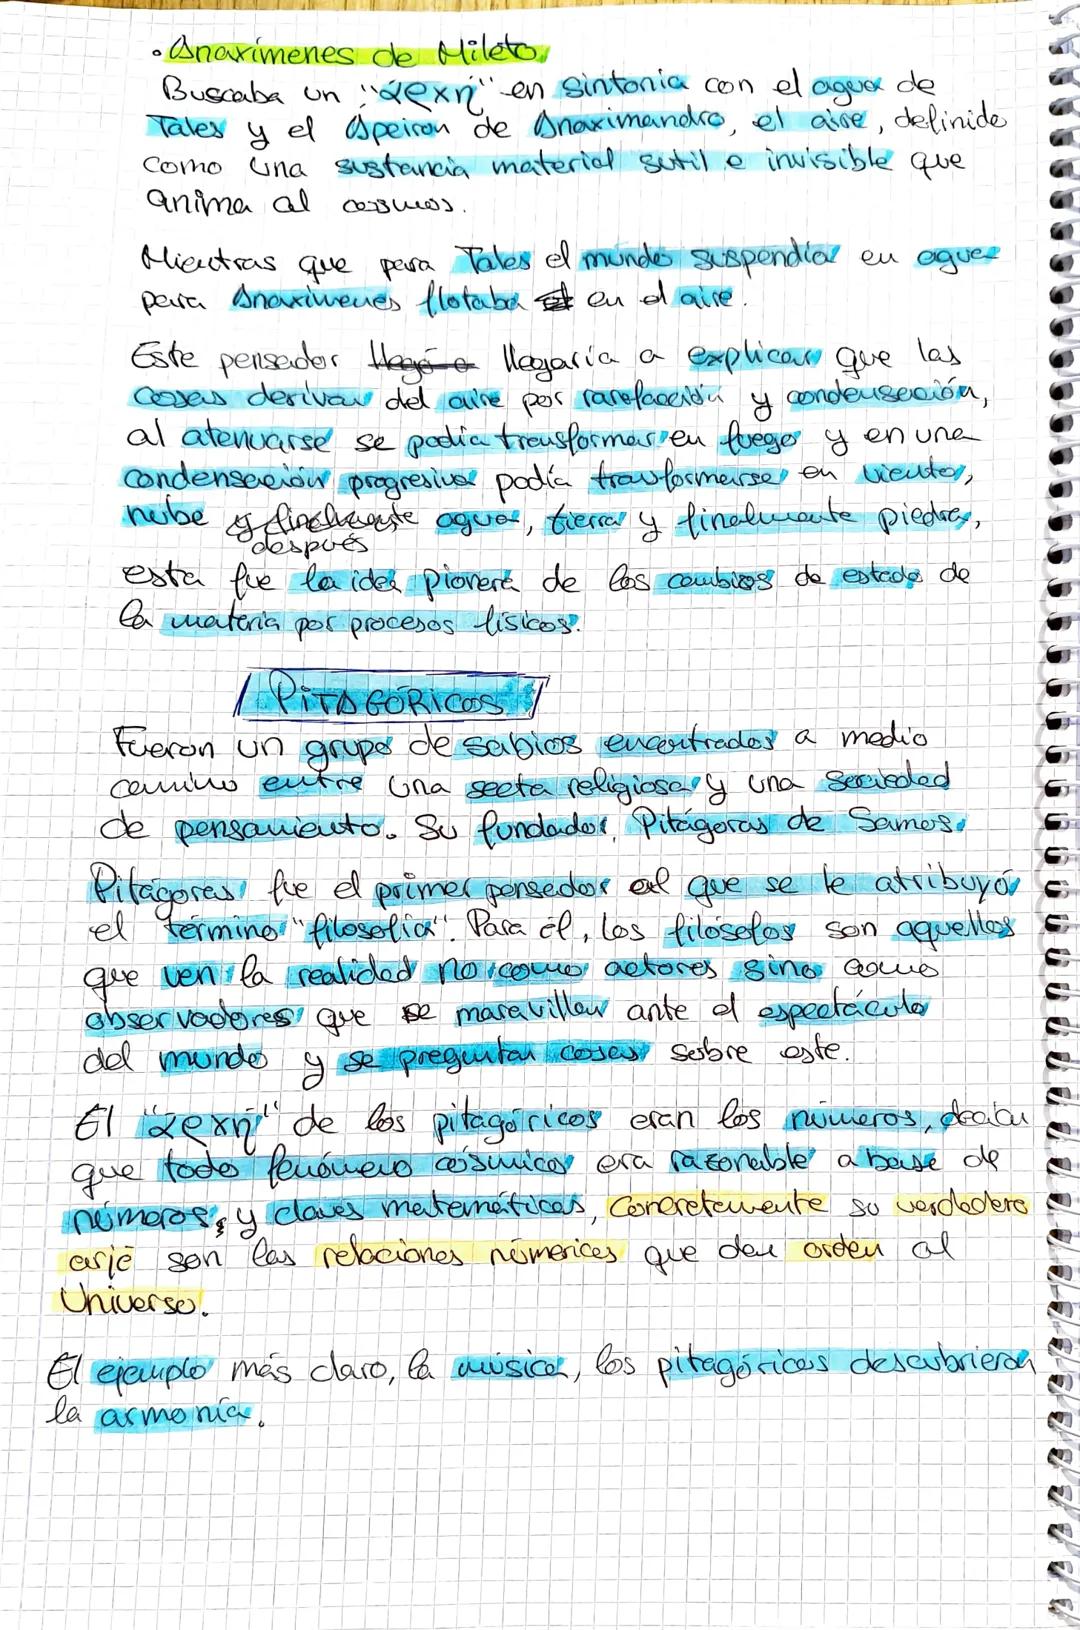 • Anaxímenes de Mileto
Buscaba un "αρχη" en sintonía con el agua de
Tales y el Apeiron de Anaximandro, el aire, definido
como una sustancia material sutil e invisible que
anima al cosmos.
Mientras que para Tales el mundo suspendía en agua
para Anaxímenes flotaba en el aire.
Este pensador llegó a llegaría a explicar que las
cosas derivan del aire por rarefacción y condensación,
al atenuarse se podía transformar en fuego y en una
condensación progresiva podía transformarse en viento,
nube y finalmente agua, tierra y finalmente piedra,
después
esta fue la idea pionera de los cambios de estado de
la materia por procesos físicos.
PITAGÓRICOS
Fueron un grupo de sabios encontrados a medio
camino entre una secta religiosa y una sociedad
de pensamiento. Su fundador, Pitágoras de Samos.
Pitágoras fue el primer pensador al que se le atribuyó
el término "filosofía". Para él, los filósofos son aquellos
que ven la realidad no como actores sino como
observadores que se maravillan ante el espectáculo
del mundo y se preguntan cosas sobre este.
El "αρχη" de los pitagóricos eran los números, decían
que todo fenómeno cósmico era razonable a base de
números y claves matemáticas, concretamente su verdadero
arjé son las relaciones númericas que dan orden al
Universo.
El ejemplo más claro, la música, los pitagóricos descubrieron
la armonía.